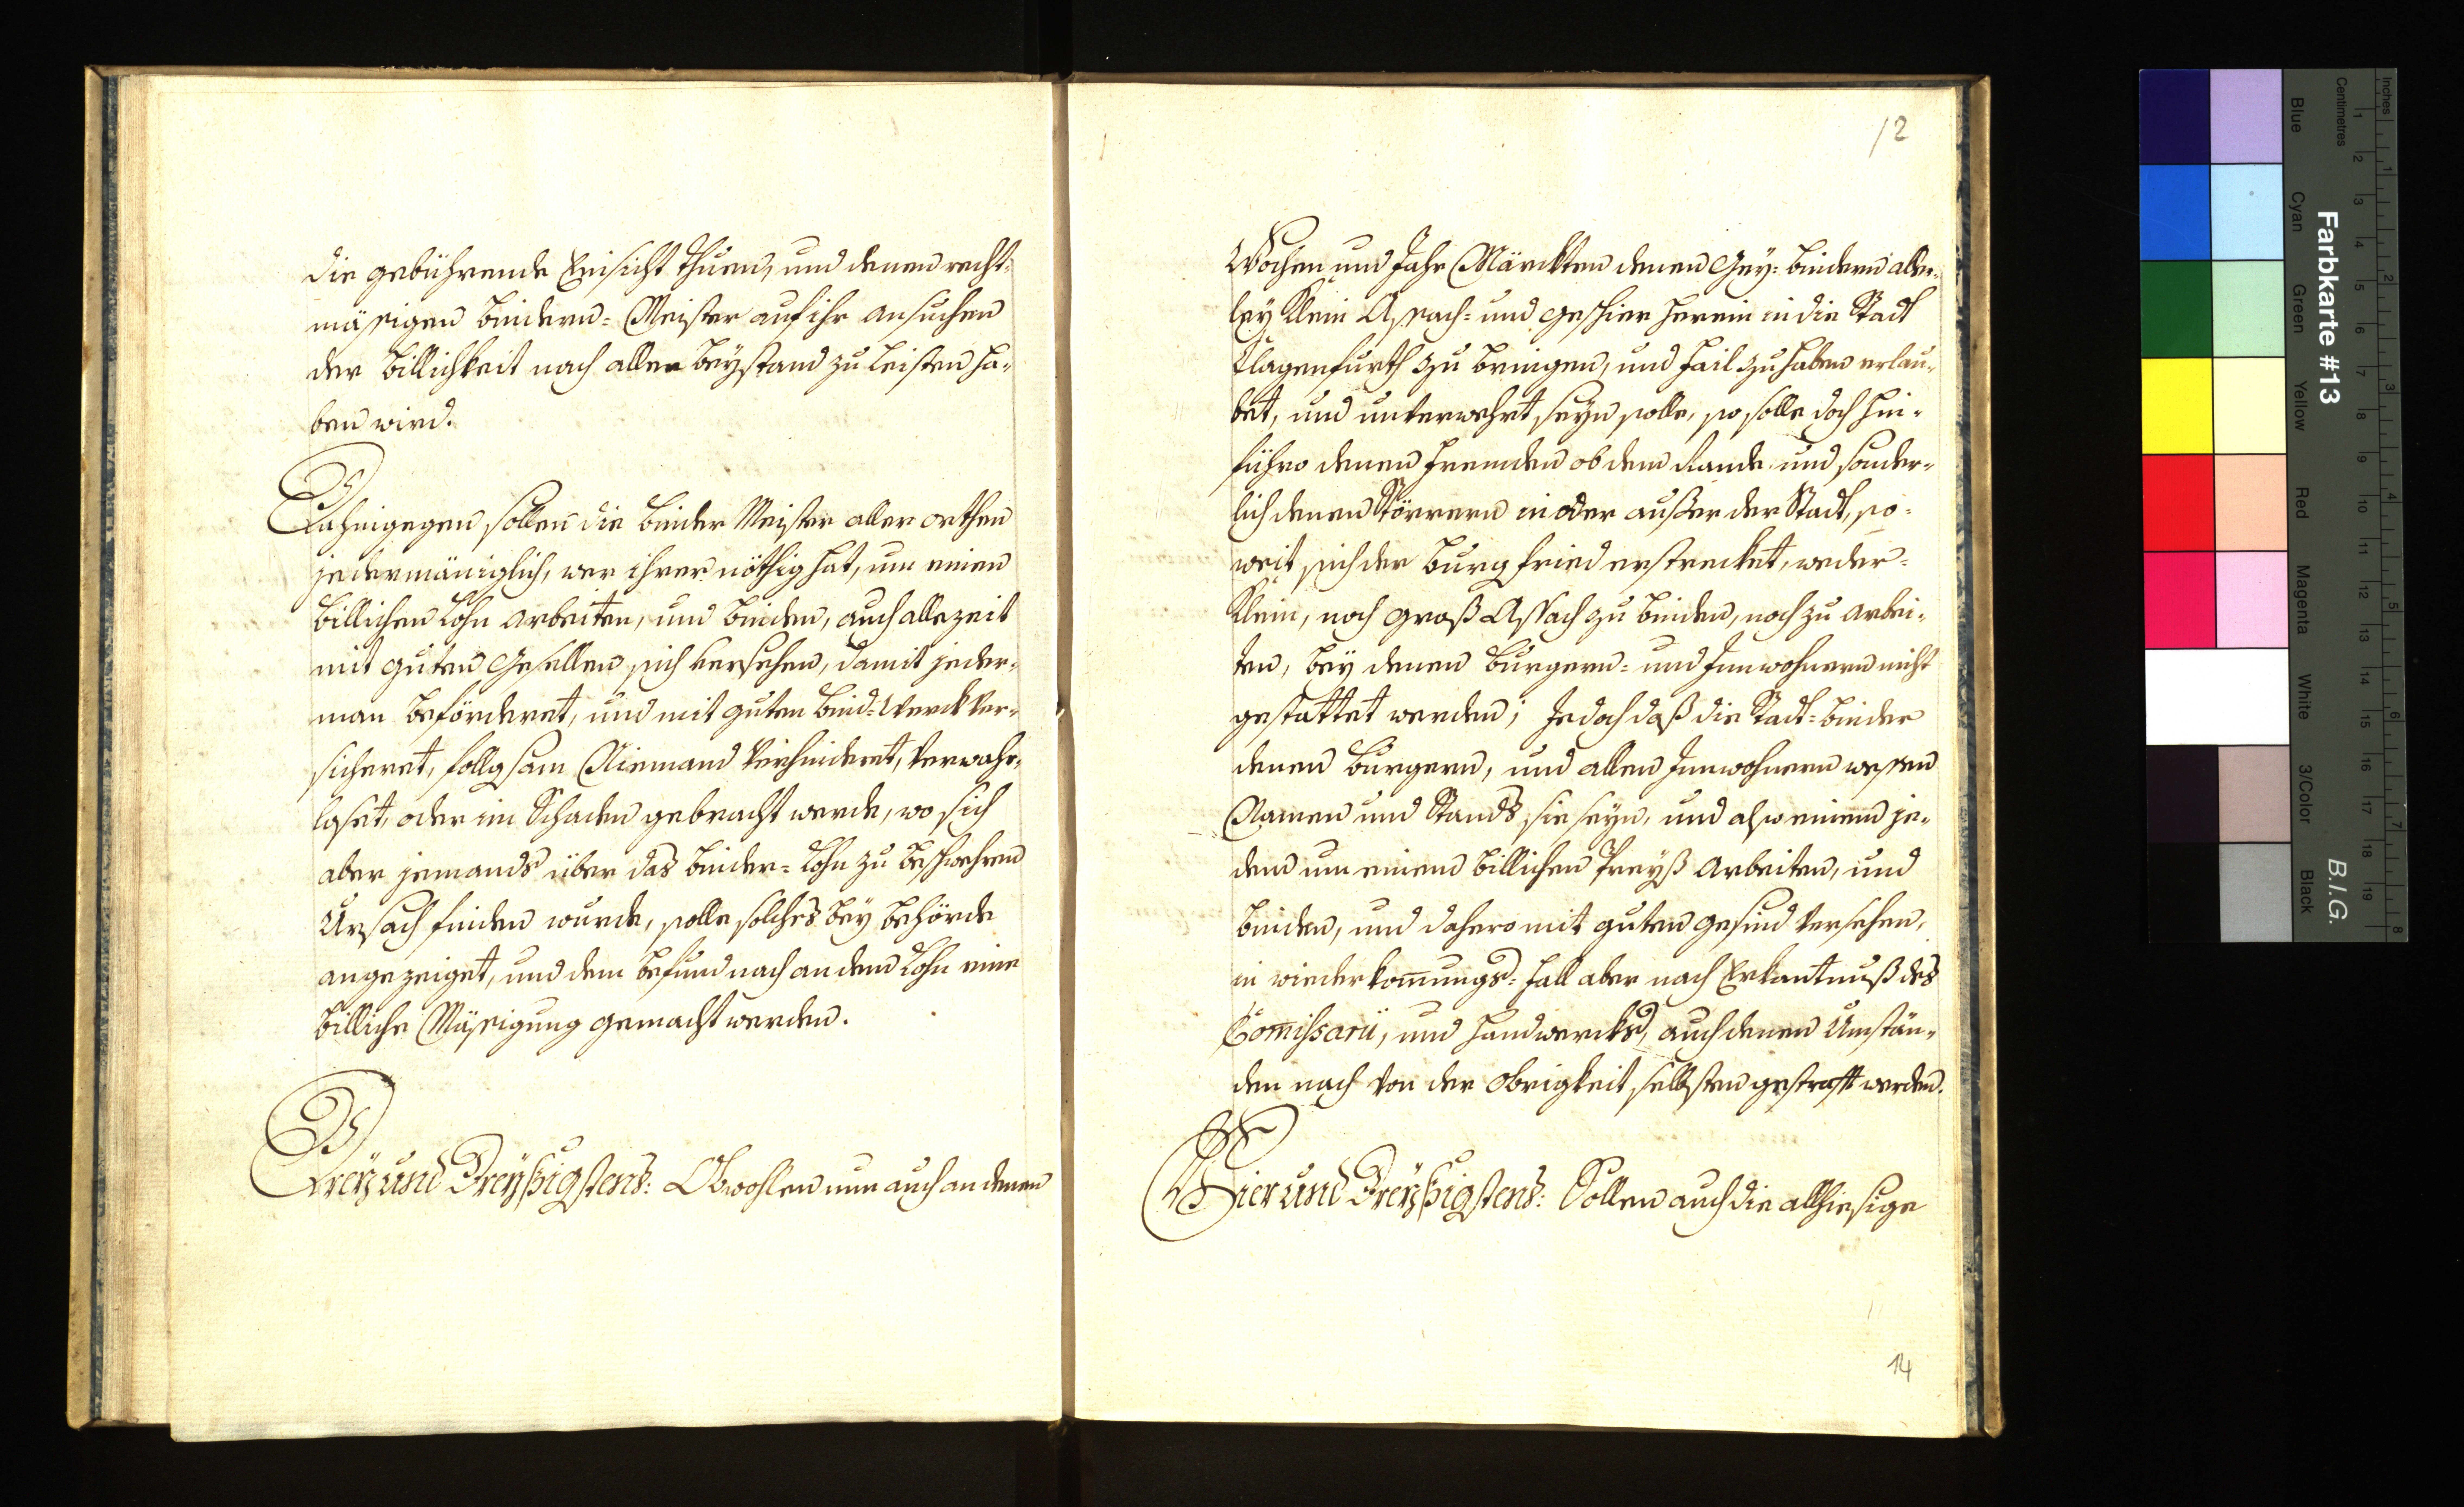 die gebührende Einsicht thuen, und denen recht-
mäsigen Bindern-Meister auf ihr ansuchen
der Billichkeit nach allen Beystand zu leisten ha-
ben wird.
Dahingegen sollen die Binder Meister aller orthen
jedermäniglich, wer ihrer nöthig hat, um einen
billichen Lohn arbeiten, und binden, auch allezeit
mit guten Gesellen sich versehen, damit jeder-
man beförderet, und mit guten Bind-Werck ver-
sicheret, follgsam Niemand verhinderet, verwahr-
loset, oder in Schaden gebracht werde, wo sich
aber jemands über das Binder-Lohn zu beschwehren
Ursach finden wurde, solle solches bey Behörde
angezeiget, und dem befund nach an dem Lohn eine
billiche Mäsigung gemacht werden.
Drey und Dreyßigstens: Obwohlen nun auch an denen
12
Wochen und Jahr Märckten denen Gey-Bindern aller-
ley Klein Assach- und geschier herein in die Stadt
Clagenfurth zu bringen, und fail zu haben erlau-
bet, und unverwehrt seyn solle, so solle doch hin-
führo denen Fremden ob dem Lande und sonder-
lich denen Störrern in oder außer der Stadt, so-
weit sich der Burgfried erstrecket, weder-
Klein, noch groß Assach zu binden, noch zu arbei-
ten, bey denen Burgern- und Innwohnern nicht
gestattet werden; Jedoch daß die Stadt-Binder
denen Burgern, und allen Innwohnern wessen
Namen und Stands sie seyn, und also einem je-
den um einem billichen Preyß arbeiten, und
binden, und dahero mit guten gesind versehen,
in wiederkom̅ungs-fall aber nach Erkantnuß des
Com̅issarii, und Handwercks, auch denen Umstän-
den nach von der Obrigkeit selbsten gestrafft werden.
Vier und Dreyßigstens: Sollen auch die allhiesige
14
Inches
Centimetres
1 2 3 4 5 6 7 8
1 2 3 4 5 6 7 8 9 10 11 12 13 14 15 16 17 18 19
Farbkarte #13
B.I.G.
Blue
Cyan
Green
Yellow
Red
Magenta
White
3/Color
Black